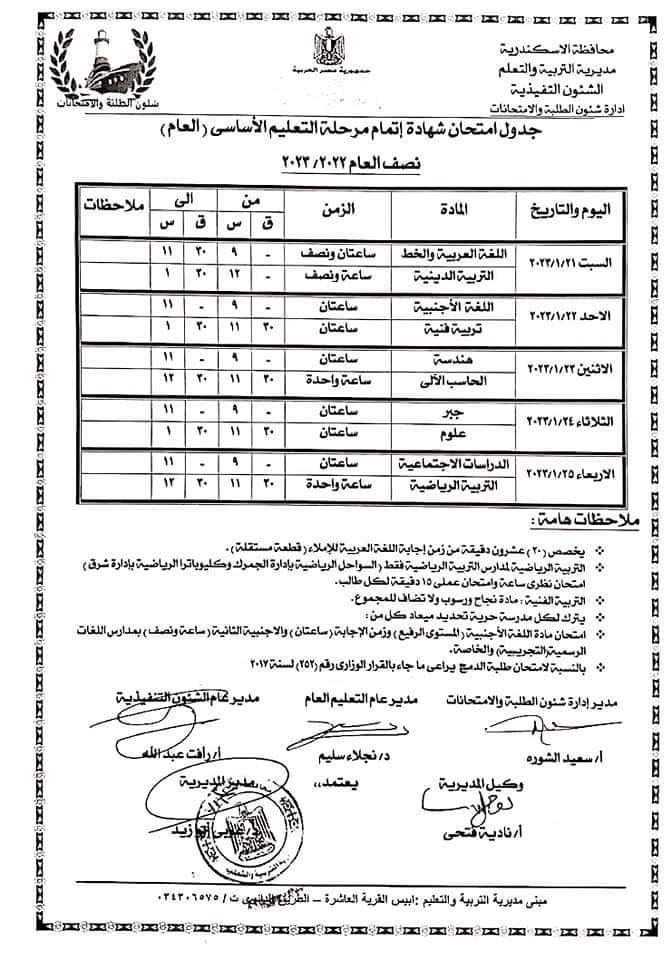 محافظة الاسكندرية
مديرية التربية والتعلم
الشئون التنفيذية
ادارة شئون الطلبة والامتحانات
جمهورية مصر العربية
شئون الطلبة والامتحانات
جدول امتحان شهادة إتمام مرحلة التعليم الأساسى (العام)
نصف العام ٢٠٢٣/٢٠٢٢
اليوم والتاريخ المادة الزمن من الى ملاحظات
ق س ق س
السبت ٢٠٢٣/١/٢١ اللغة العربية والخط ساعتان ونصف - ٩ ٣٠ ١١
التربية الدينية ساعة ونصف - ١٢ ٣٠ ١
الاحد ٢٠٢٣/١/٢٢ اللغة الأجنبية ساعتان - ٩ - ١١
تربية فنية ساعتان ٣٠ ١١ ٣٠ ١
الاثنين ٢٠٢٣/١/٢٣ هندسة ساعتان - ٩ - ١١
الحاسب الآلى ساعة واحدة ٣٠ ١١ ٣٠ ١٢
الثلاثاء ٢٠٢٣/١/٢٤ جبر ساعتان - ٩ - ١١
علوم ساعتان ٣٠ ١١ ٣٠ ١
الاربعاء ٢٠٢٣/١/٢٥ الدراسات الاجتماعية ساعتان - ٩ - ١١
التربية الرياضية ساعة واحدة ٣٠ ١١ ٣٠ ١٢
ملاحظات هامة :
❖ يخصص (٢٠) عشرون دقيقة من زمن إجابة اللغة العربية للإملاء (قطعة مستقلة).
❖ التربية الرياضية لمدارس التربية الرياضية فقط (السواحل الرياضية بإدارة الجمرك وكليوباترا الرياضية بإدارة شرق)
امتحان نظرى ساعة وامتحان عملى ١٥ دقيقة لكل طالب.
❖ التربية الفنية : مادة نجاح ورسوب ولا تضاف للمجموع.
❖ يترك لكل مدرسة حرية تحديد ميعاد كل من :
❖ امتحان مادة اللغة الأجنبية (المستوى الرفيع) وزمن الإجابة (ساعتان) والاجنبية الثانية (ساعة ونصف) بمدارس اللغات
الرسمية (التجريبية) والخاصة.
❖ بالنسبة لامتحان طلبة الدمج يراعى ما جاء بالقرار الوزارى رقم (٢٥٢) لسنة ٢٠١٧
مدير إدارة شئون الطلبة والامتحانات
مدير عام التعليم العام
مدير عام الشئون التنفيذية
أ/ سعيد الشوره
د/ نجلاء سليم
أ/ رأفت عبد الله
وكيل المديرية
يعتمد،،
مدير المديرية
أ/ نادية فتحى
مبنى مديرية التربية والتعليم : أبيس القرية العاشرة – الطريق ت / ٠٣٤٣٠٦٥٧٥